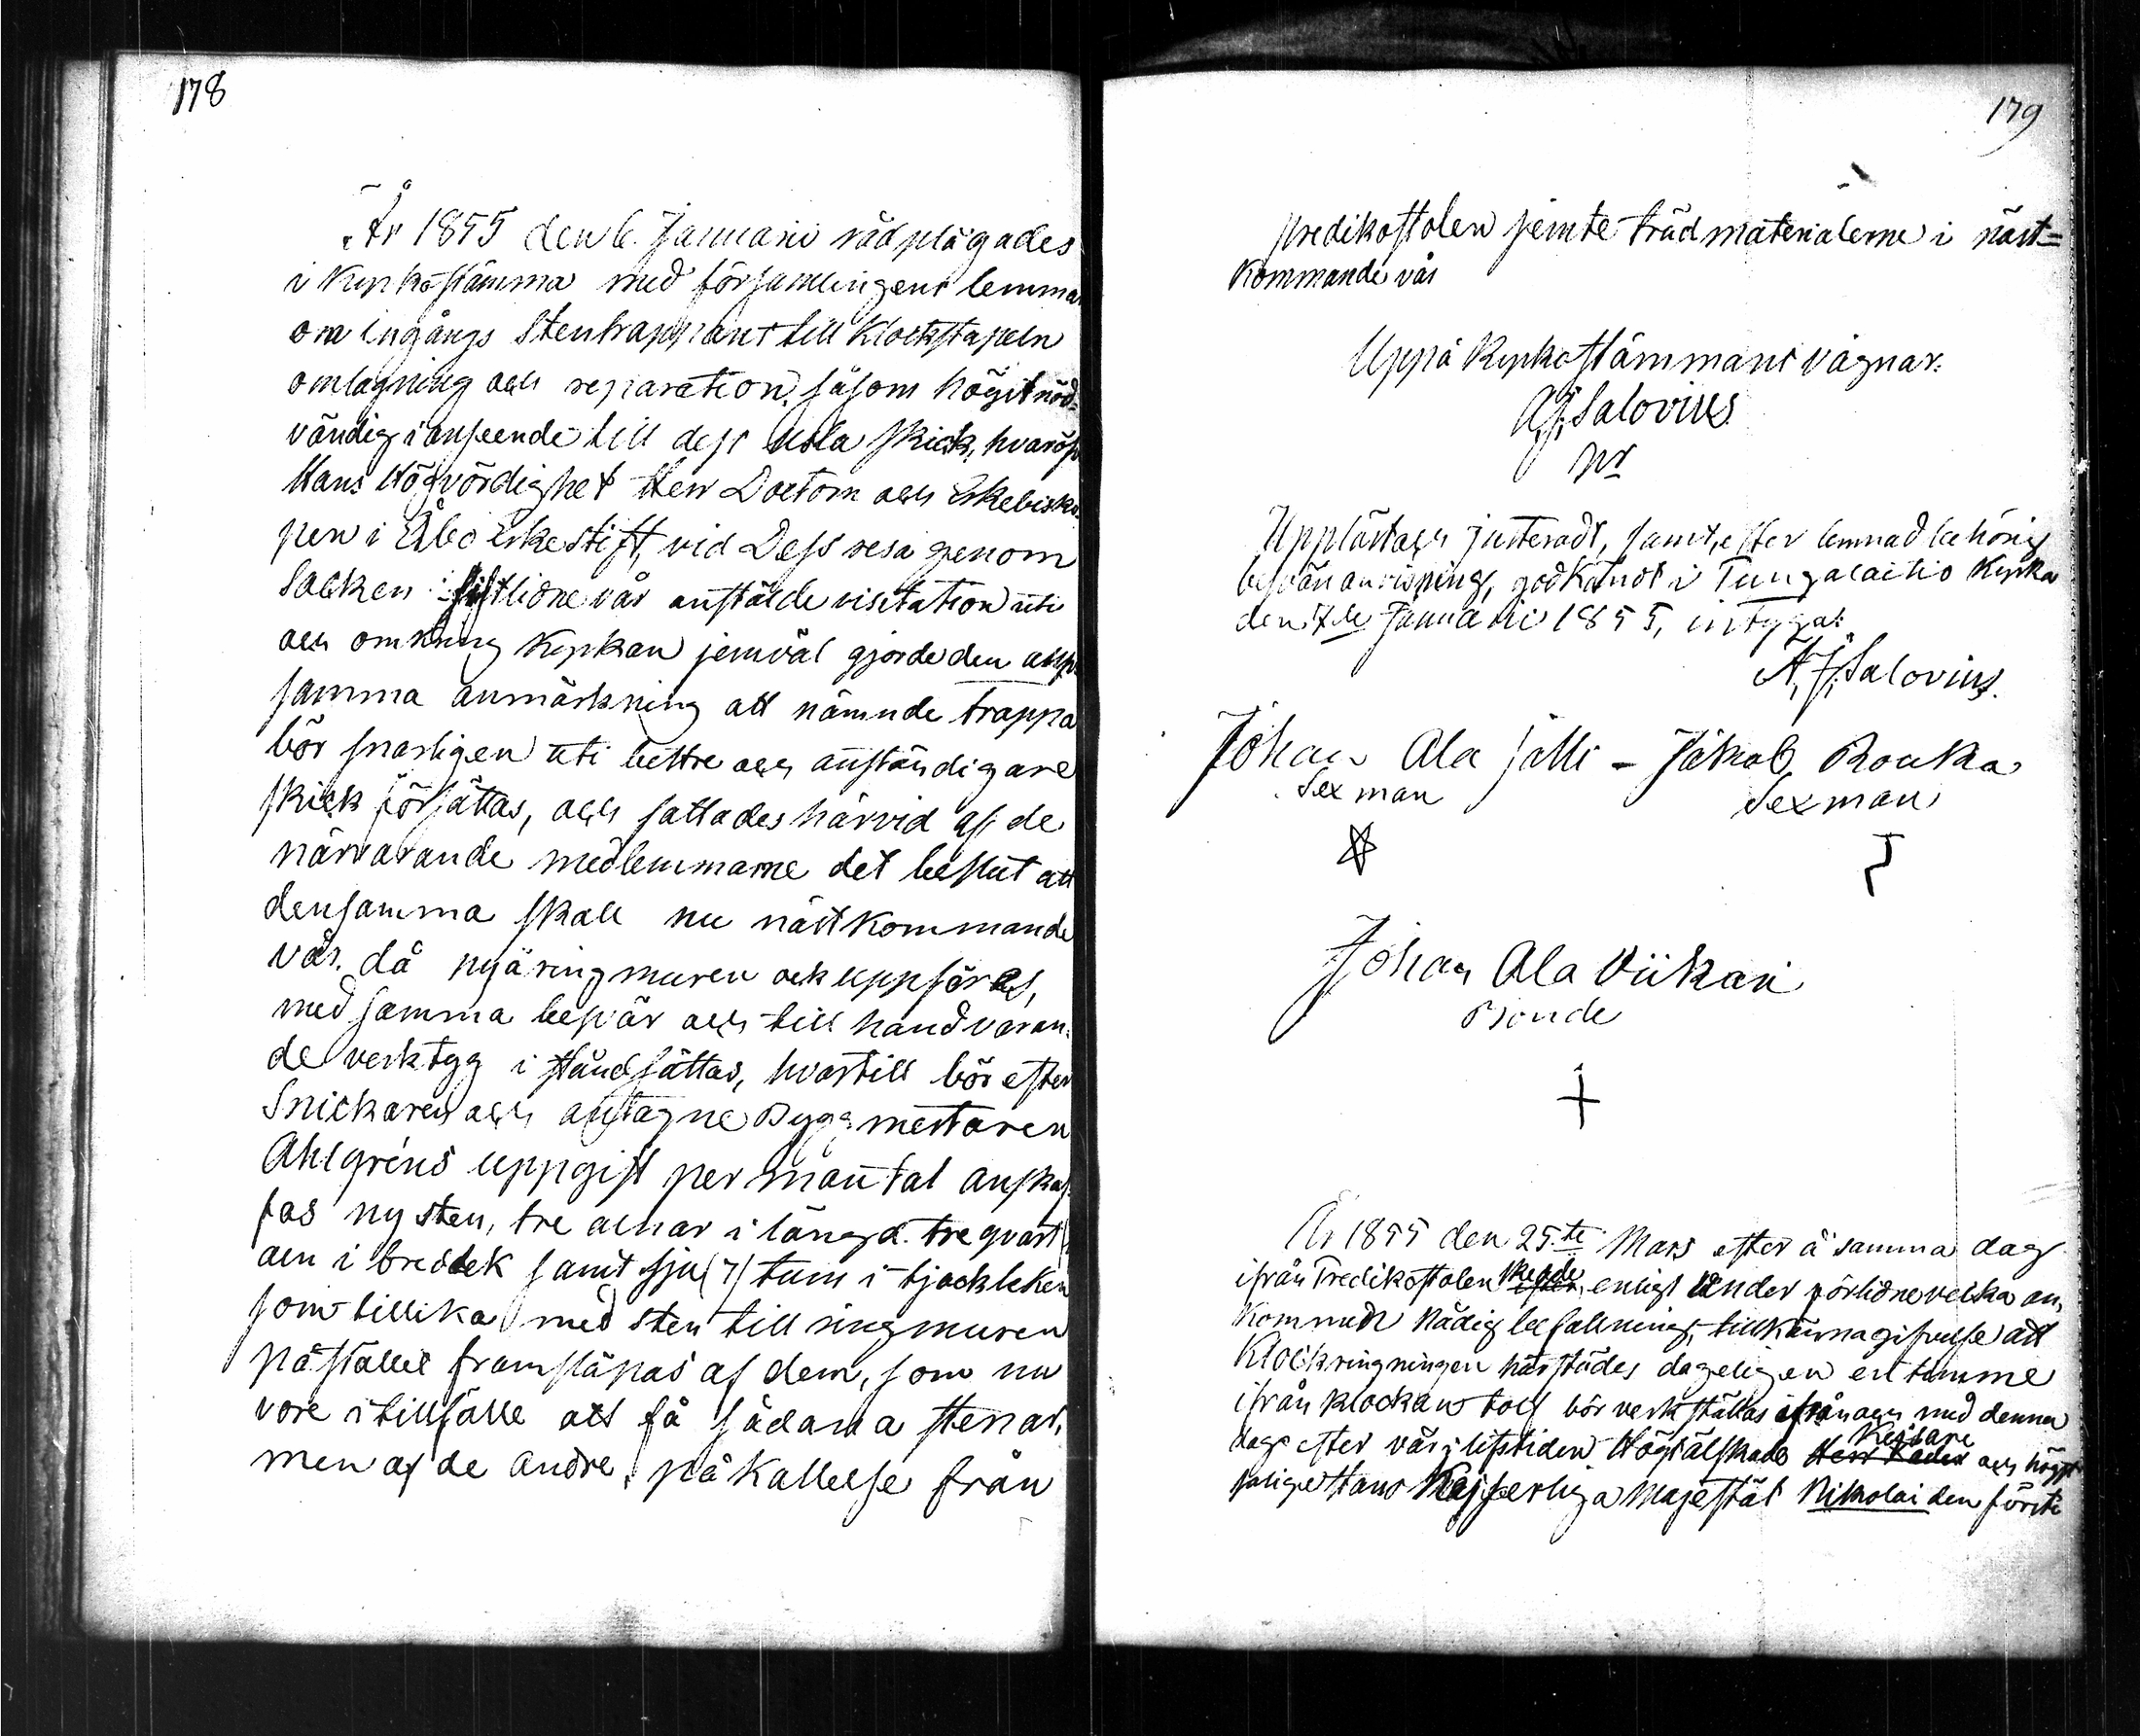 178
År 1855 den 6. Januarii rådplägades
i Kyrkostämma med församlingens lemmar
om ingångs Stentrappans till Klockstapeln
omlagning och reparation, såsom högst nöd=
vändig i anseende till dess usla skick, hvaröfver
Hans Högvördighet Herr Doctorn och Erkebisko-
pen i Åbo Erkestift, vid Dess resa genom
Socken sistlidne vår anstälde visitation uti
och omkring Kyrkan jemväl gjorde den
samma anmärkning att nämnde trappa
bör snarligen uti bettre och anständigare
skick försättas, och fattades härvid af de
närvarande medlemmarne det beslut att
densamma skall nu nästkommande
vår, då nya ringmuren ock uppföres,
med samma besvär och till hand varan=
de verktyg i stånd sättas, hvartill bör efter
Snickaren och antagne Byggmestaren
Ahlgréns uppgift per mantal anskaf-
fas ny sten, tre alnar i längd, tre qvart
aln i bredlek samt sju (7) tum i tjockleken
som tillika med sten till ringmuren
på stället framsläpas af dem, som nu
vore i tillfälle att få sådana stenar,
men af de andre, på kallelse från
179
predikostolen jemte trädmaterialerne i näst=
kommande vår
Uppå Kyrkostämmans vägnar:
A.J. Salovius
Uppläst och justeradt, samt, efter lemnad behörig
besvärsanvisning, godkändt i Tungalaitio Kyrka
den 7de Januarii 1855, intyga:
A. J. Salovius.
Johan Ala Jilli - Jakob Rouka
Sexman Sexman
Johan Ala Viikari
Bonde
År 1855 den 25te Mars efter å samma dag
ifrån Predikostolen skedde, enligt under förlidne vecka an-
kommen Nådig befallning, tillkännagifvelse att
Klockringningen härstädes dageligen en timme
ifrån klockan tolf bör verkställas ifrån och med denna
Kejsare
dag efter vår i lifstiden Högtälskade Herr och högst
salige Hans Kejserliga Majestät Nikolai den förste